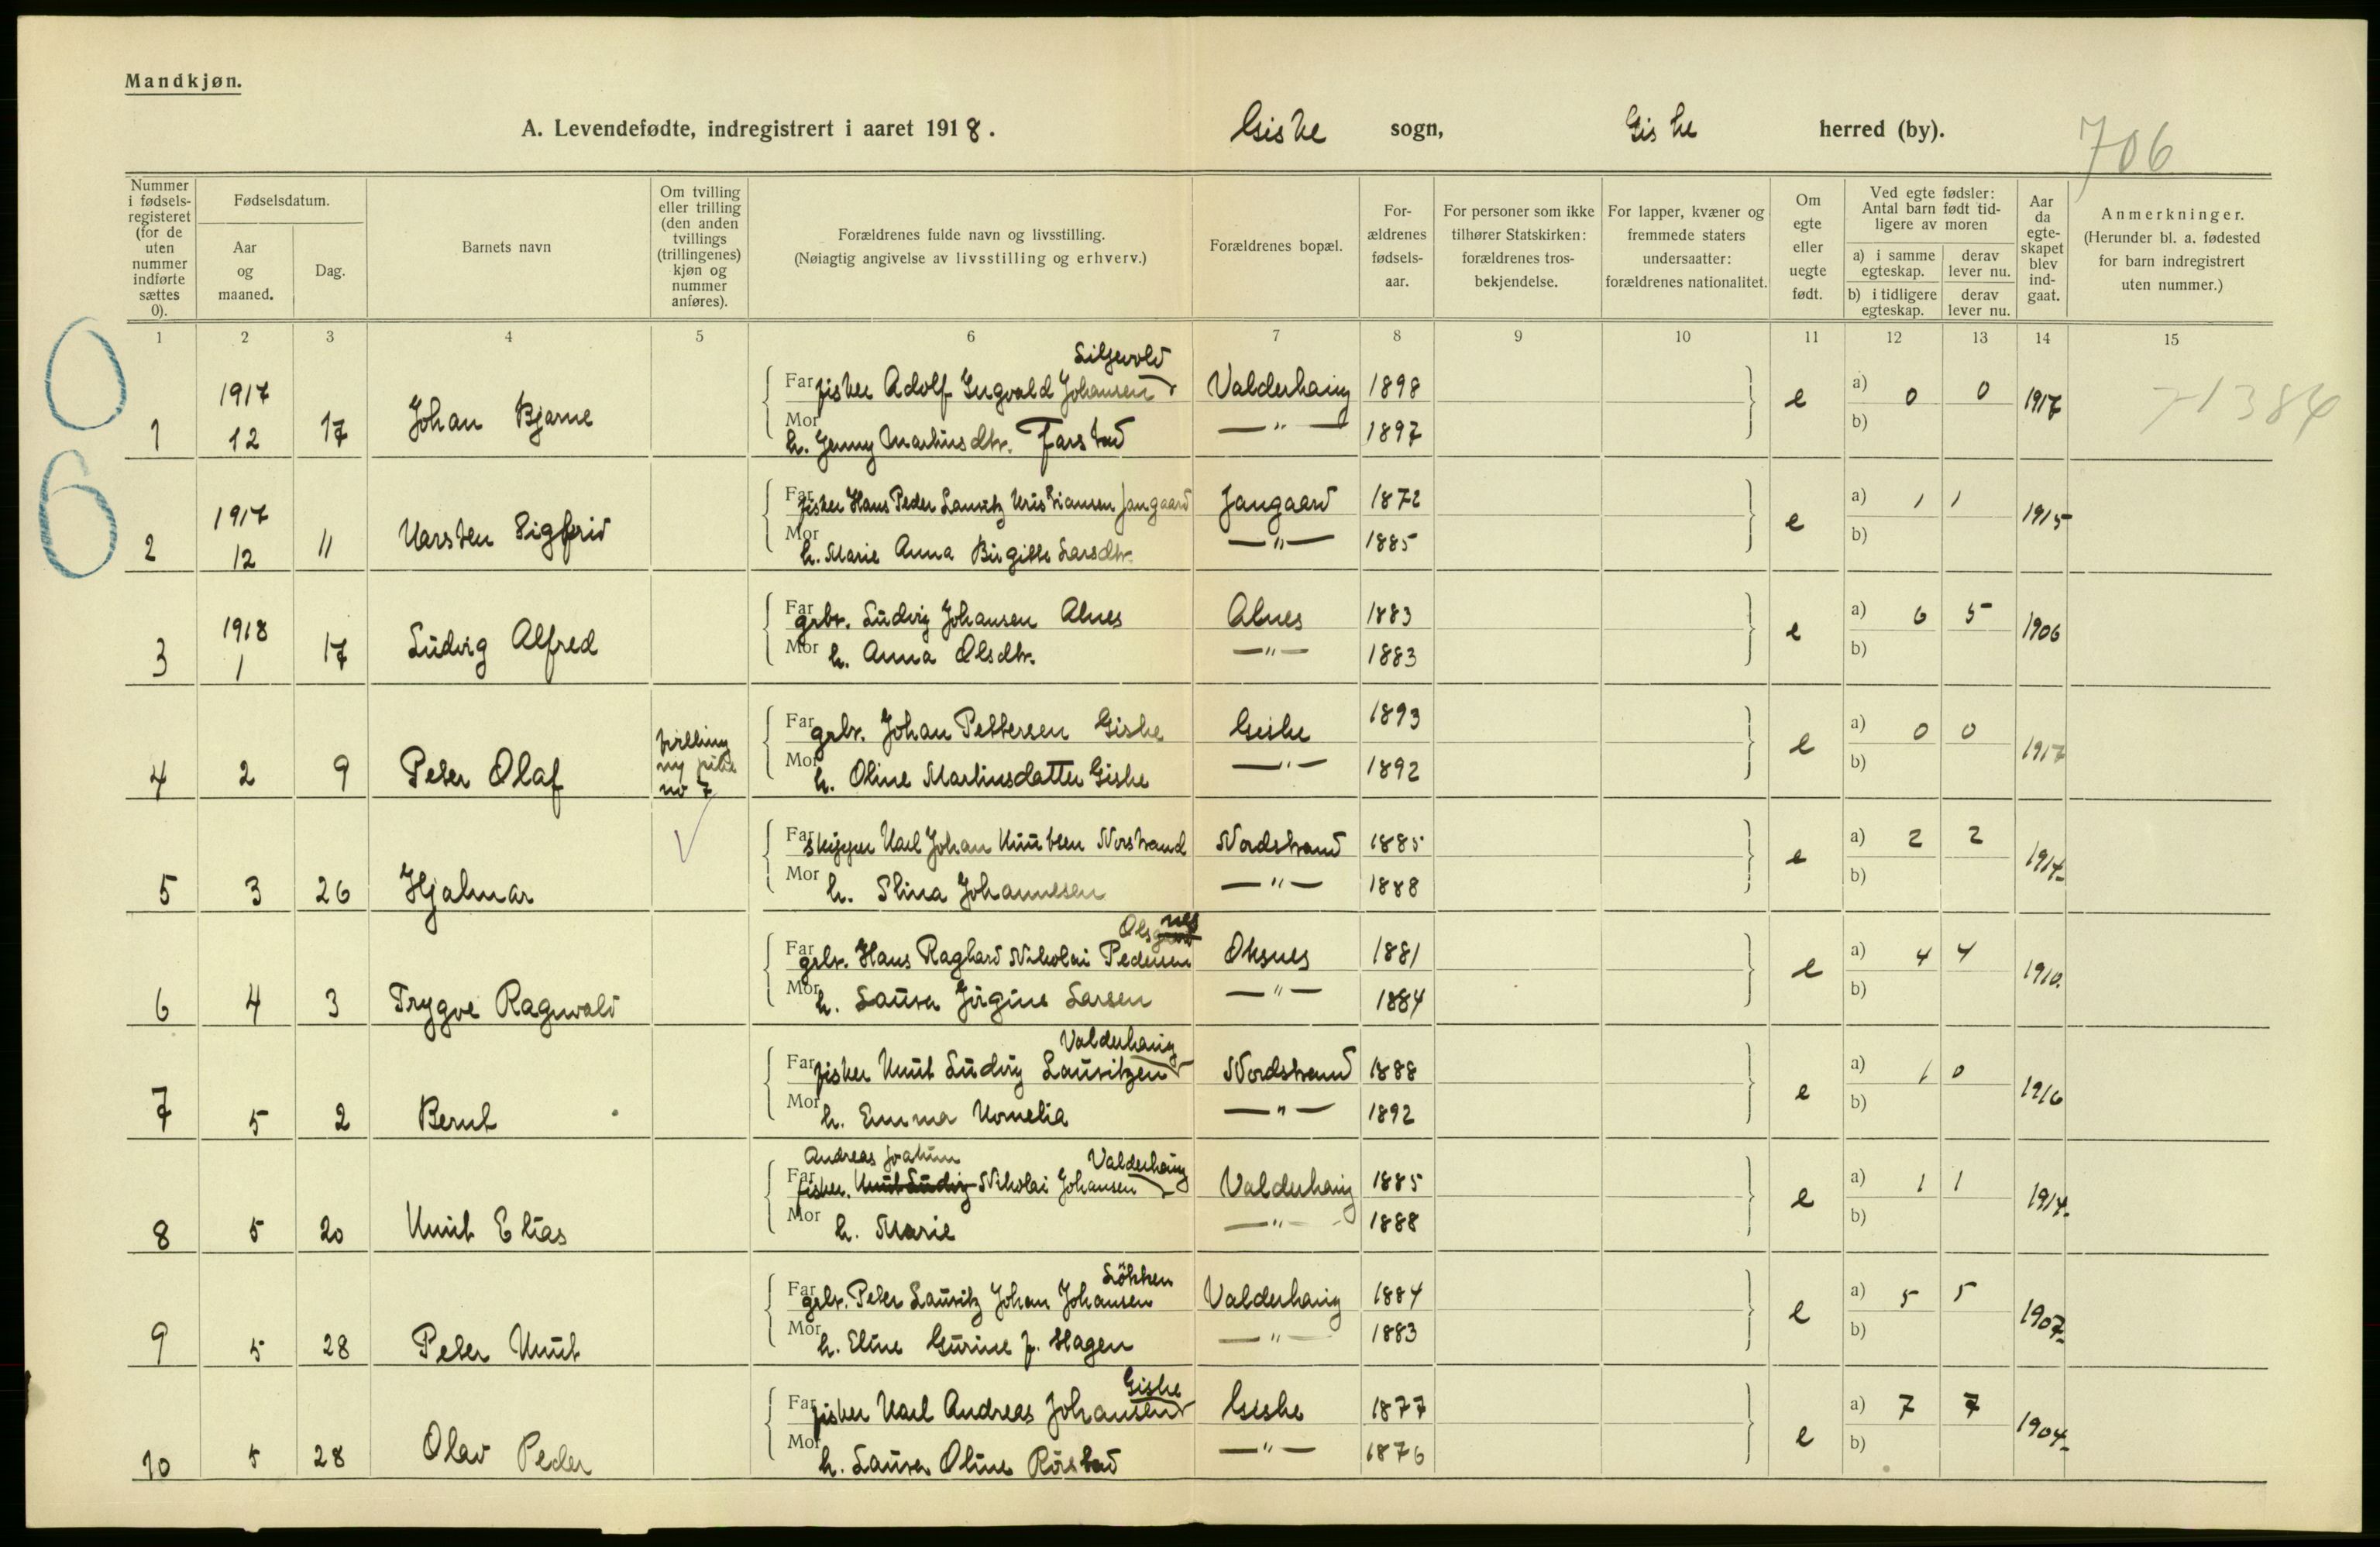 Mandkjøn.
A. Levendefødte, indregistrert i aaret 1918. Giske sogn, Giske herred (by). 706
Nummer i fødsels-registeret (for de uten nummer indførte sættes 0).
Fødselsdatum.
Aar og maaned.
Dag.
Barnets navn
Om tvilling eller trilling (den anden tvillings (trillingenes) kjøn og nummer anføres).
Forældrenes fulde navn og livsstilling.
(Nøiagtig angivelse av livsstilling og erhverv.)
Forældrenes bopæl.
For-ældrenes fødsels-aar.
For personer som ikke tilhører Statskirken: forældrenes tros-bekjendelse.
For lapper, kvæner og fremmede staters undersaatter: forældrenes nationalitet.
Om egte eller uegte født.
Ved egte fødsler: Antal barn født tid-ligere av moren
a) i samme egteskap. derav lever nu.
b) i tidligere egteskap. derav lever nu.
Aar da egte-skapet blev ind-gaat.
Anmerkninger.
(Herunder bl. a. fødested for barn indregistrert uten nummer.)
1 2 3 4 5 6 7 8 9 10 11 12 13 14 15
0
6
1917
1 12 17 Johan Bjarne
Far fisker Adolf Ingvald Johansen Valderhaug 1898 e a) 0 0 1917 71384
Mor h. Jenny Martinsdtr. Farstad —"— 1897 b)
1917
2 12 11 Karsten Sigfrid
Far fisker Hans Peder Lauritz Kristiansen Jangaard Jangaard 1872 e a) 1 1 1915
Mor h. Marie Anna Birgitte Larsdtr. —"— 1885 b)
1918
3 1 17 Ludvig Alfred
Far grbr. Ludvig Johansen Alnes Alnes 1883 e a) 6 5 1906
Mor h. Anna Olsdtr. —"— 1883 b)
4 2 9 Peter Olaf tvilling m pike no 7
Far grbr. Johan Pettersen Giske Giske 1893 e a) 0 0 1917
Mor h. Oline Martinsdatter Giske —"— 1892 b)
5 3 26 Hjalmar
Far skipper Karl Johan Knutsen Norstrand Nordstrand 1885 e a) 2 2 1914
Mor h. Stina Johannesen —"— 1888 b)
6 4 3 Trygve Ragnvald
Far grbr. Hans Nikolai Pedersen Oksnes 1881 e a) 4 4 1910.
Mor h. Laura Jørgine Larsen —"— 1884 b)
Valderhaug
7 5 2 Bernt
Far fisker Knut Ludvig Lauritzen Nordstrand 1888 e a) 1 0 1916
Mor h. Emma Kornelia —"— 1892 b)
Andreas Joakim Valderhaug
8 5 20 Knut Elias
Far fisker. Knut Ludvig Nikolai Johansen Valderhaug 1885 e a) 1 1 1914
Mor h. Marie —"— 1888 b)
Lökken
9 5 28 Peter Knut
Far grbr. Peter Lauritz Johan Johansen Valderhaug 1884 e a) 5 5 1907
Mor h. Eline Gurine f. Hagen —"— 1883 b)
Giske
10 5 28 Olav Peder
Far fisker Karl Andreas Johansen Giske 1877 e a) 7 7 1904
Mor h. Laura Oline Rörstad —"— 1876 b)